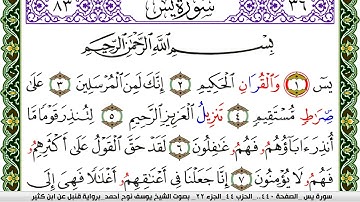 ٣٦ سُورَةُ يسٓ ٨٣
بِسْمِ اللَّهِ الرَّحْمَٰنِ الرَّحِيمِ
يسٓ ١ وَالْقُرَانِ الْحَكِيمِ ٢ إِنَّكَ لَمِنَ الْمُرْسَلِينَ ٣ عَلَىٰ
صِرَٰطٍ مُّسْتَقِيمٍ ٤ تَنزِيلُ الْعَزِيزِ الرَّحِيمِ ٥ لِتُنذِرَ قَوْمًا مَّا
أُنذِرَ ءَابَآؤُهُمُ فَهُمُ غَٰفِلُونَ ٦ لَقَدْ حَقَّ الْقَوْلُ عَلَىٰ أَكْثَرِهِمُ
فَهُمُ لَا يُؤْمِنُونَ ٧ إِنَّا جَعَلْنَا فِي أَعْنَٰقِهِمُ أَغْلَٰلًا فَهِيَ إِلَى
سورة يس .. الصفحة ٤٤٠.. الحزب ٤٤.. الجزء ٢٢.. بصوت الشيخ يوسف نوح أحمد.. برواية قنبل عن ابن كثير